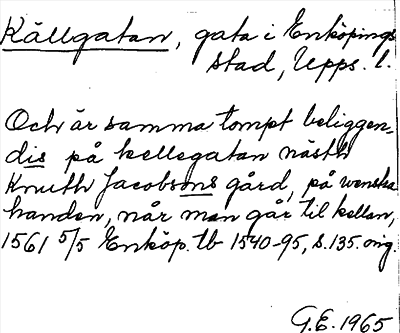 Källgatan, gata i Enköpings
stad, Upps. l.
Och är samma tompt beliggen-
dis på kellegatan nästh
Knuth Jacobsons gård, på wenska
handen, når man går til kellan,
1561 5/5 Enköp. tb 1540-95, s. 135. orig.
G.E. 1965